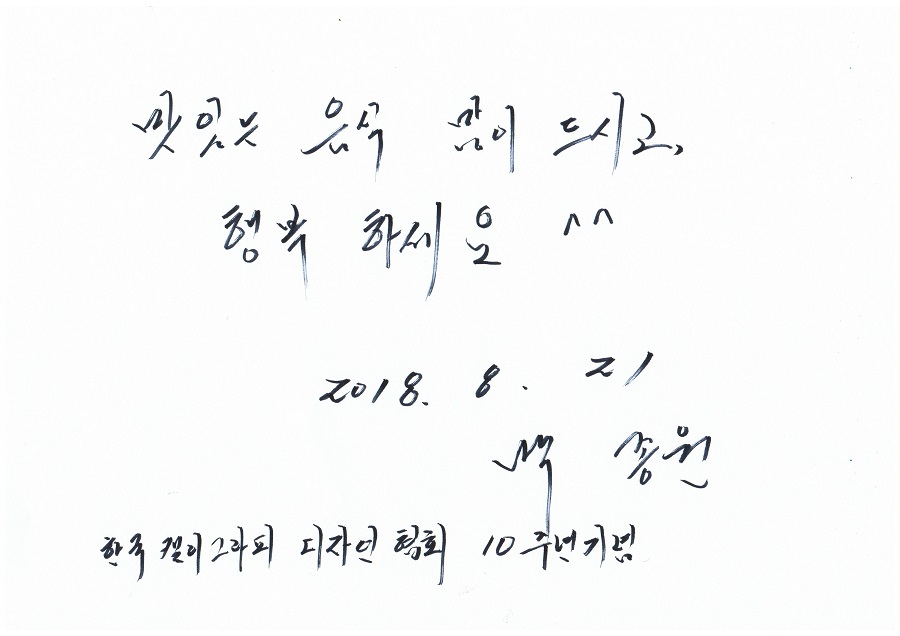 맛있는 음식 많이 드시고,
행복 하세요 ^^
2018. 8. 21
백 종원
한국 캘리그라피 디자인 협회 10주년기념